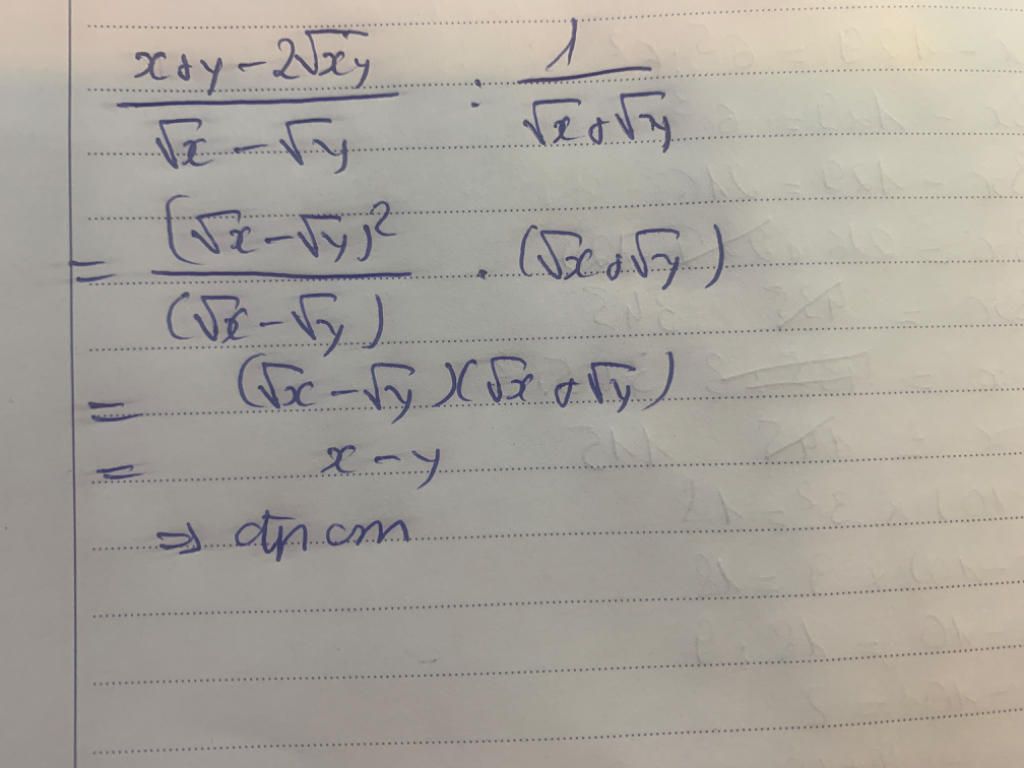 x+y-2√xy / √x-√y : 1 / √x+√y
= (√x-√y)² / (√x-√y) . (√x+√y)
= (√x-√y)(√x+√y)
= x-y
⇒ đpcm